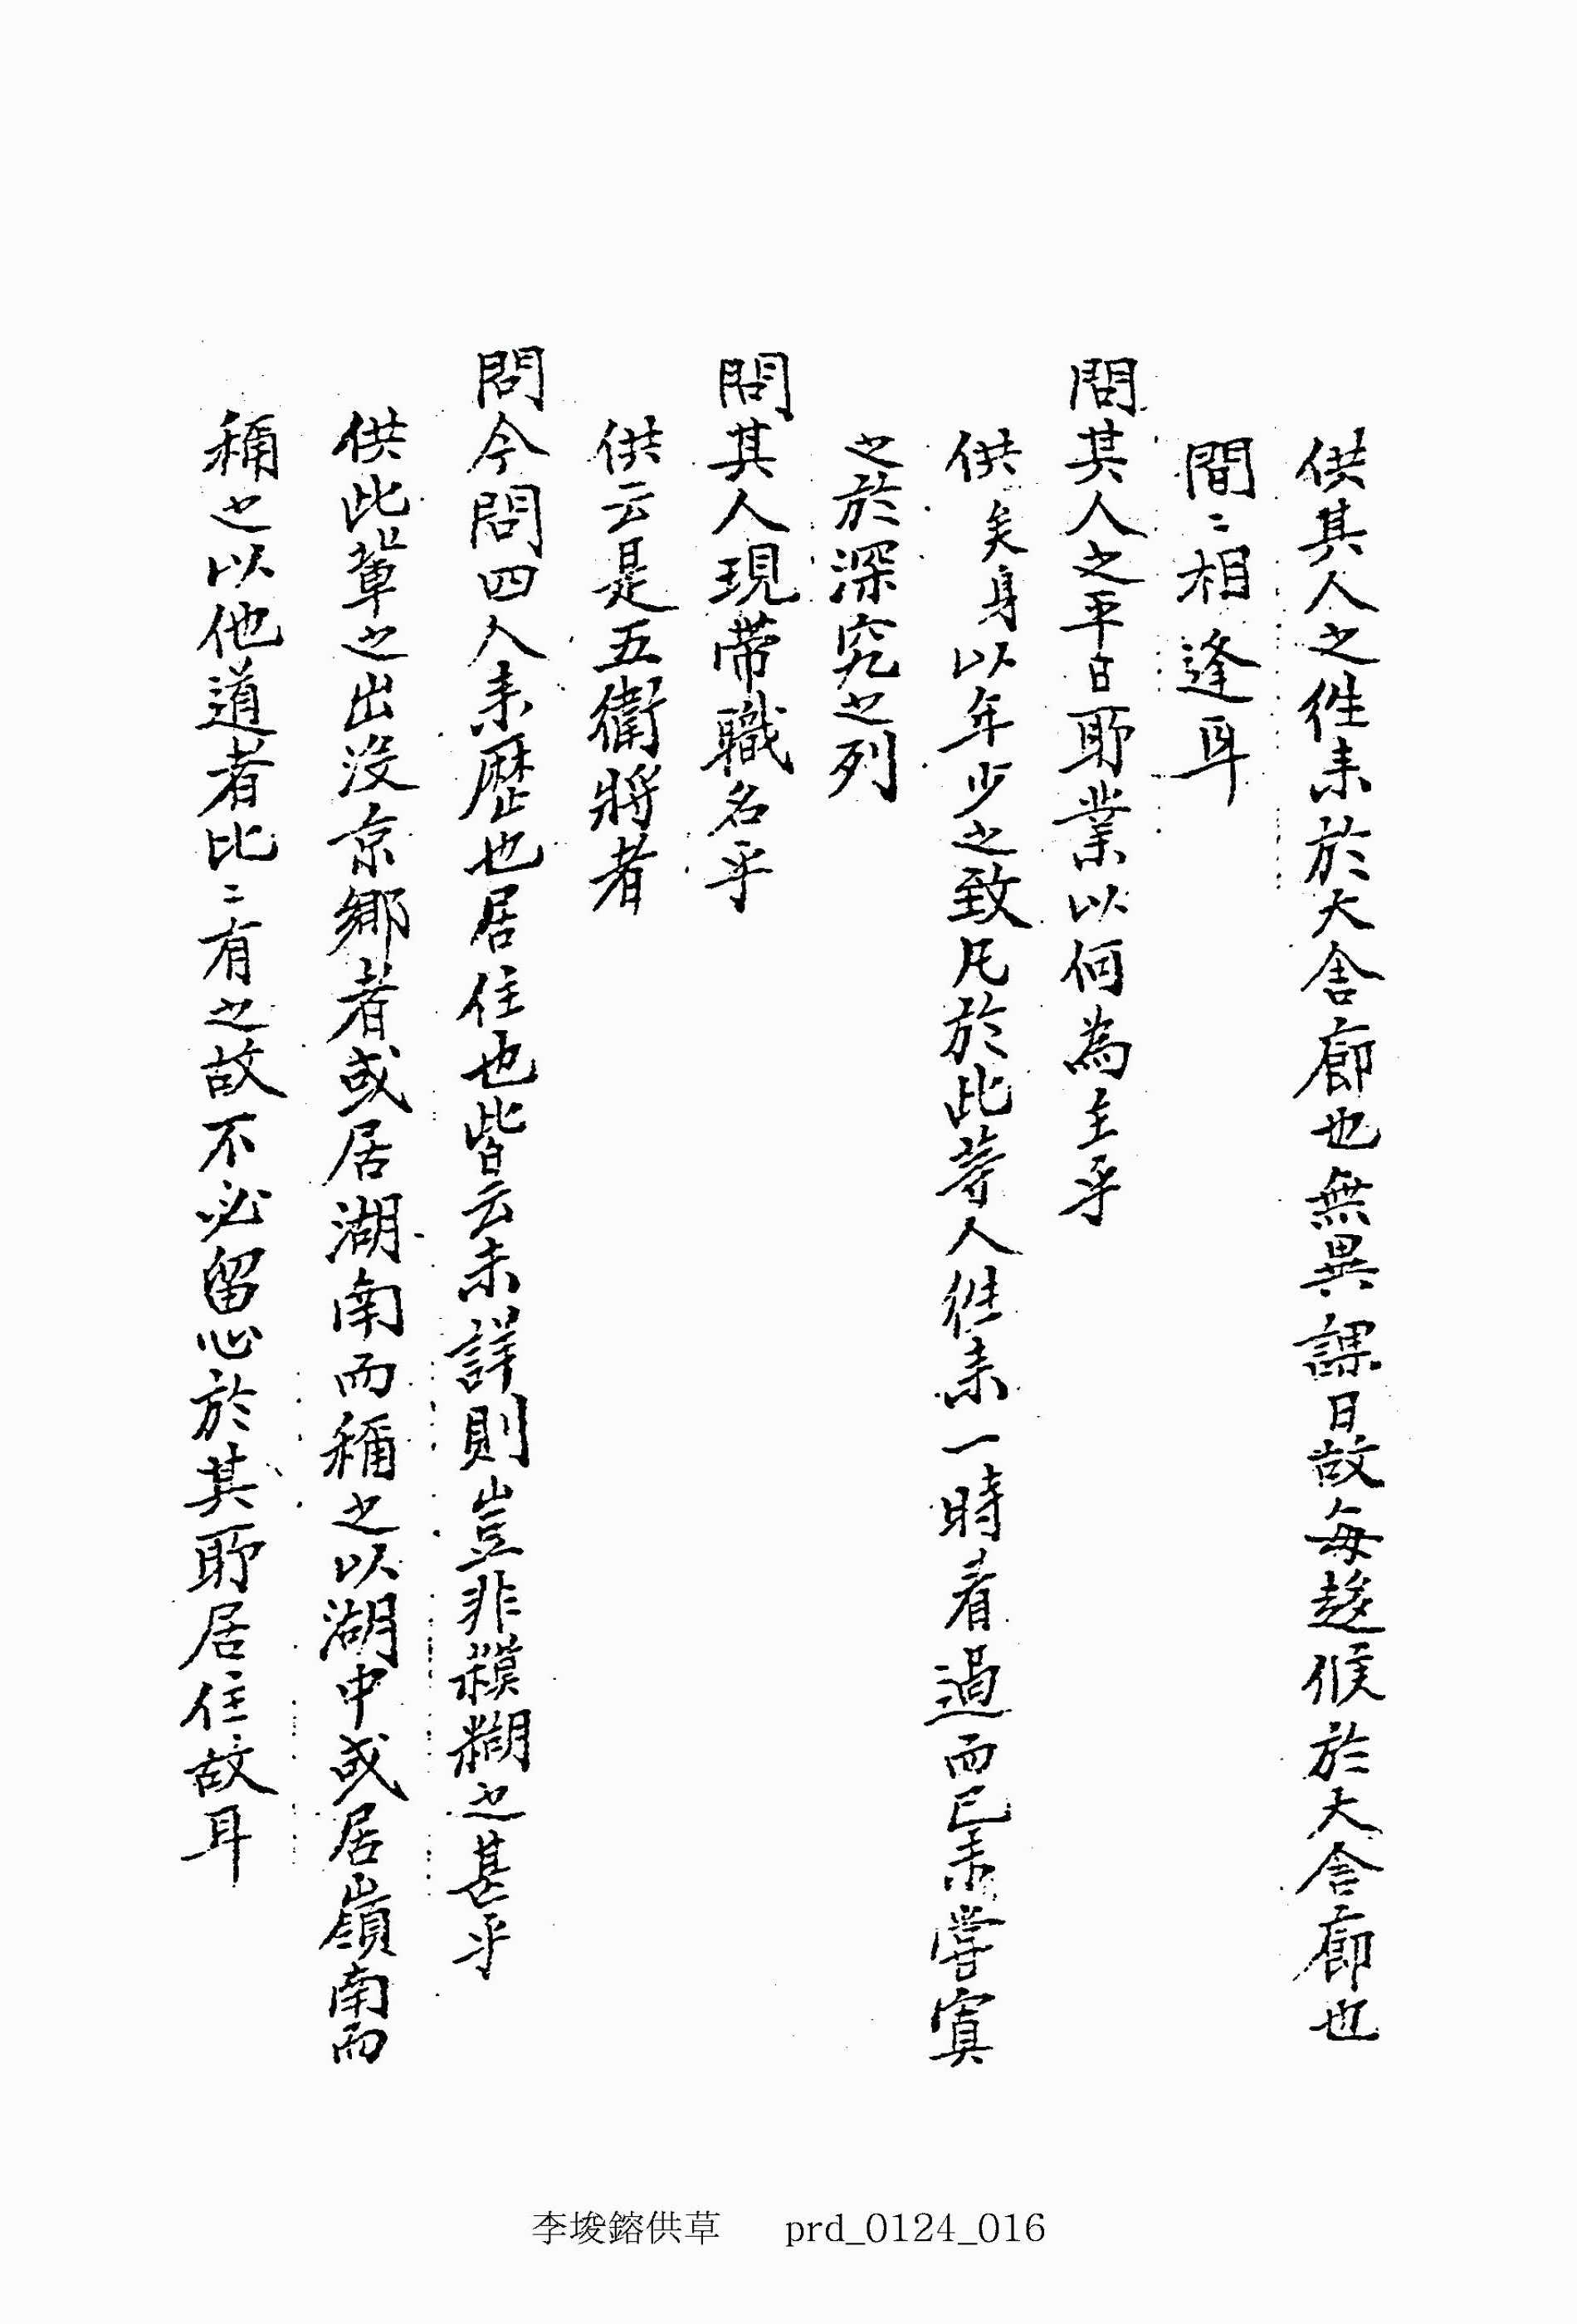 供其人之徃来於大舍廊也無異課日故每趍候於大舍廊也
間〻相逢耳
問其人之平日所業以何為主乎
供矣身以年少之致凡於此等人徃来一時看過而已未嘗寘
之於深究之列
問其人現帶職名乎
供云是五衛將者
問今問四人来歷也居住也皆云未詳則豈非糢糊之甚乎
供此輩之出沒京鄉者或居湖南而稱之以湖中或居嶺南而
稱之以他道者比〻有之故不必留心於其所居住故耳
李埈鎔供草 prd_0124_016